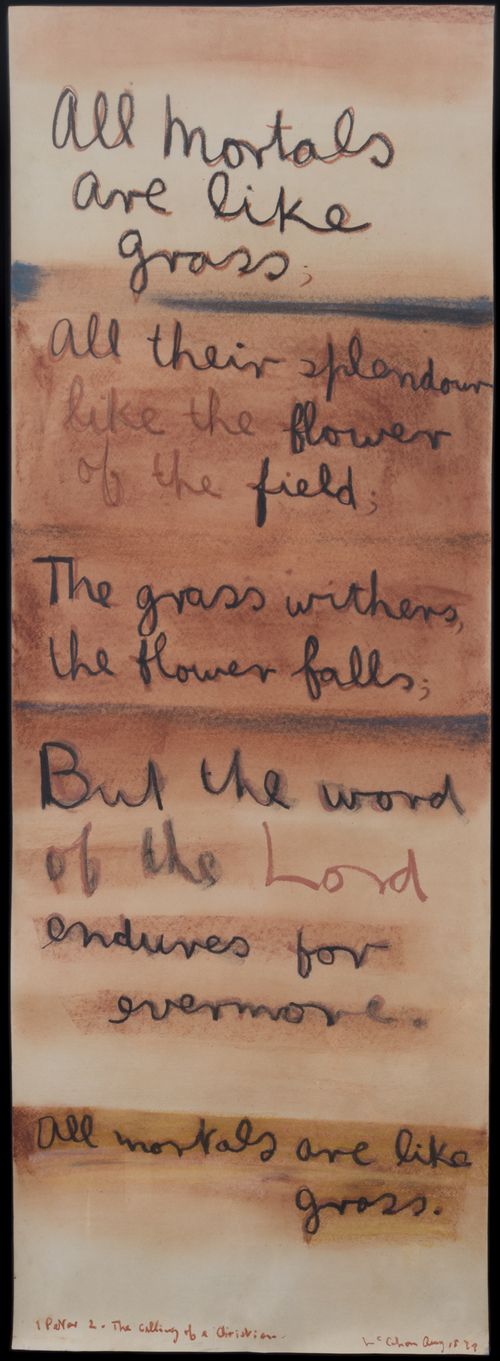 All mortals
are like
grass;
All their splendour
like the flower
of the field;
The grass withers,
the flower falls;
But the word
of the Lord
endures for
evermore.
All mortals are like
grass.
1 Peter 2. The calling of a Christian.
McCahon Aug